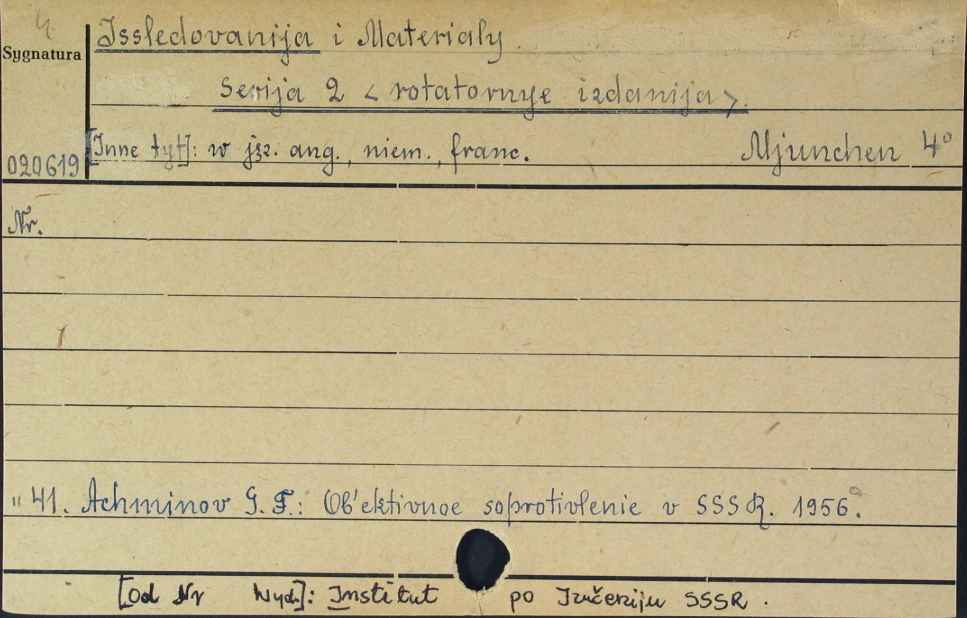 Issledovanija i Materialy
Sygnatura
Serija 2 < rotatornye izdanija >.
[Inne tyt]: w jęz. ang., niem., franc. Mjunchen 4°
020619
Nr.
" 41. Achminov G. F.: Ob'ektivnoe soprotivlenie v SSSR. 1956.
[Od Nr Wyd.]: Institut po Izučeniju SSSR.